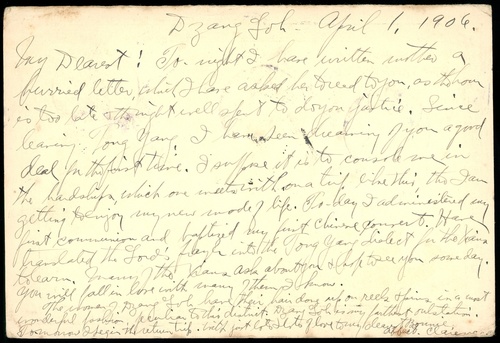 Dzang Loh - April 1, 1906.
My Dearest! To-night I have written mother a
hurried letter, which I have asked her to read to you, as the hour
is too late & the night well spent to do you justice. Since
leaving Tong Yang I have been dreaming of you a good
deal for the first time. I suppose it is to console me in
the hardships which one meets with on a trip like this, tho I am
getting to enjoy my new mode of life. To-day I administered my
first communion and baptized my first chinese convert. Have
translated the Lord's Prayer into the Tong Yang dialect for the Xians
to learn. Many of the Xians ask about you & hope to see you some day.
You will fall in love with many of them, I know.
The women of Dzang Loh have their hair done up on reels & pins in a most
wonderful fashion peculiar to this district. Dzang Loh is
Tomorrow I begin the return trip. With just lots & lots of love to my dear